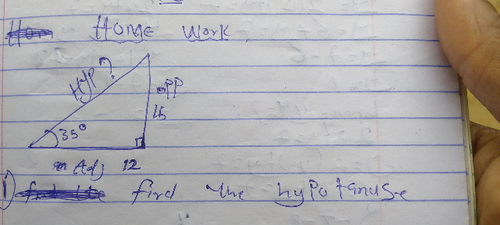 Home Work
HYP ?
opp
15
35°
Adj 12
1) find the hypotanuse